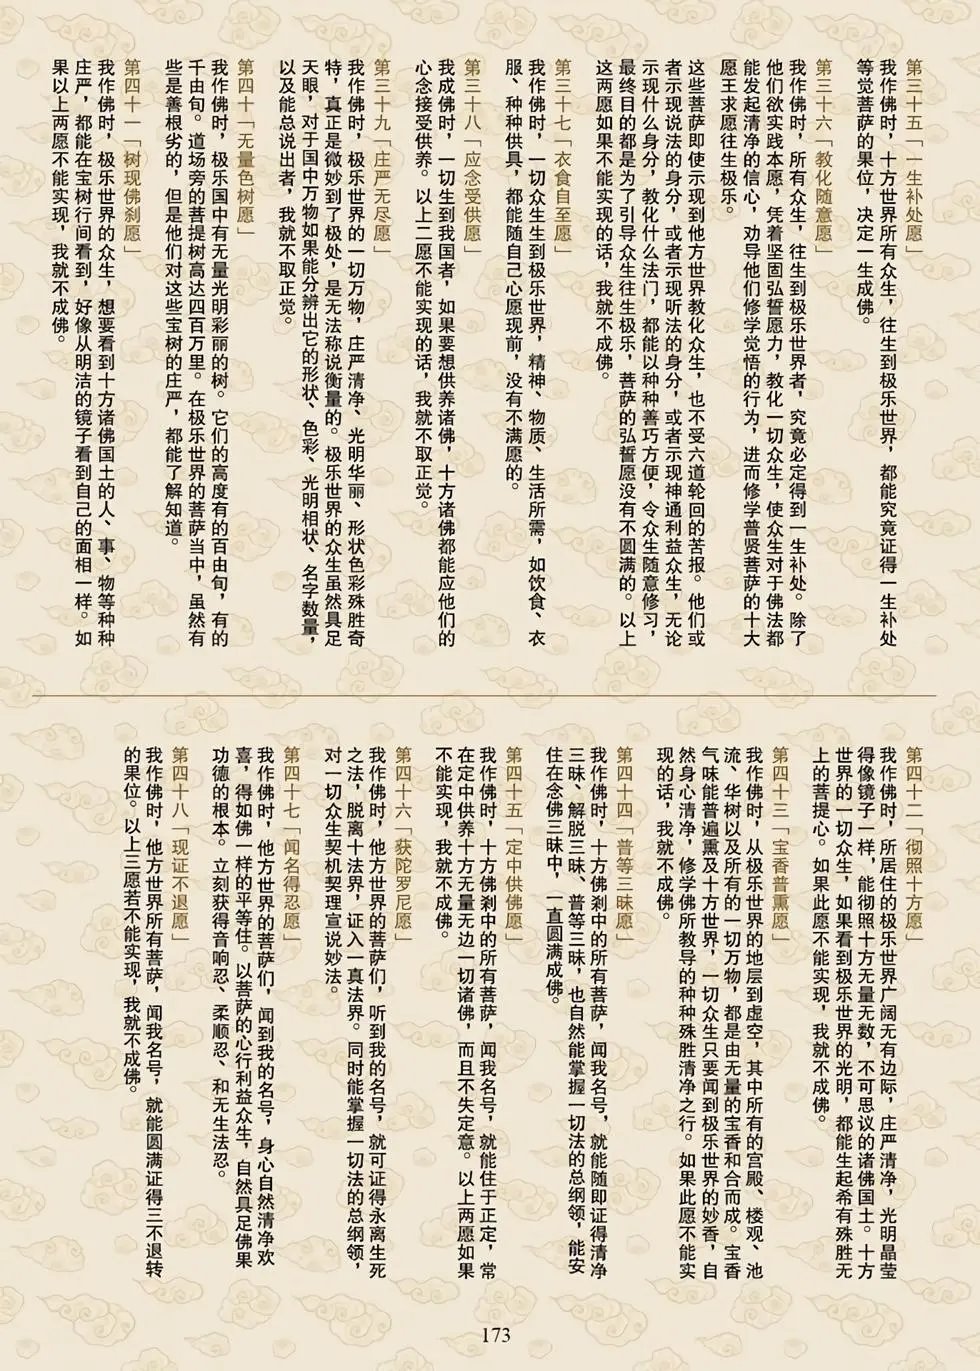 第三十五「一生补处愿」
我作佛时，十方世界所有众生，往生到极乐世界，都能究竟证得一生补处
等觉菩萨的果位，决定一生成佛。
第三十六「教化随意愿」
我作佛时，所有众生，往生到极乐世界者，究竟必定得到一生补处。除了
他们欲实践本愿，凭着坚固弘誓愿力，教化一切众生，使众生对于佛法都
能发起清净的信心，劝导他们修学觉悟的行为，进而修学普贤菩萨的十大
愿王求愿往生极乐。
这些菩萨即使示现到他方世界教化众生，也不受六道轮回的苦报。他们或
者示现说法的身分，或者示现听法的身分，或者示现神通利益众生，无论
示现什么身分，教化什么法门，都能以种种善巧方便，令众生随意修习，
最终目的都是为了引导众生往生极乐，菩萨的弘誓愿没有不圆满的。以上
这两愿如果不能实现的话，我就不成佛。
第三十七「衣食自至愿」
我作佛时，一切众生生到极乐世界，精神、物质、生活所需，如饮食、衣
服、种种供具，都能随自己心愿现前，没有不满愿的。
第三十八「应念受供愿」
我成佛时，一切生到我国者，如果要想供养诸佛，十方诸佛都能应他们的
心念接受供养。以上二愿不能实现的话，我就不取正觉。
第三十九「庄严无尽愿」
我作佛时，极乐世界的一切万物，庄严清净、光明华丽、形状色彩殊胜奇
特，真正是微妙到了极处，是无法称说衡量的。极乐世界的众生虽然具足
天眼，对于国中万物如果能分辨出它的形状、色彩、光明相状、名字数量，
以及能总说出者，我就不取正觉。
第四十「无量色树愿」
我作佛时，极乐国中有无量光明彩丽的树。它们的高度有的百由旬，有的
千由旬。道场旁的菩提树高达四百万里。在极乐世界的菩萨当中，虽然有
些是善根劣的，但是他们对这些宝树的庄严，都能了解知道。
第四十一「树现佛刹愿」
我作佛时，极乐世界的众生，想要看到十方诸佛国土的人、事、物等种种
庄严，都能在宝树行间看到，好像从明洁的镜子看到自己的面相一样。如
果以上两愿不能实现，我就不成佛。
第四十二「彻照十方愿」
我作佛时，所居住的极乐世界广阔无有边际，庄严清净，光明晶莹
得像镜子一样，能彻照十方无量无数，不可思议的诸佛国土。十方
世界的一切众生，如果看到极乐世界的光明，都能生起希有殊胜无
上的菩提心。如果此愿不能实现，我就不成佛。
第四十三「宝香普熏愿」
我作佛时，从极乐世界的地层到虚空，其中所有的宫殿、楼观、池
流、华树以及所有的一切万物，都是由无量的宝香和合而成。宝香
气味能普遍熏及十方世界，一切众生只要闻到极乐世界的妙香，自
然身心清净，修学佛所教导的种种殊胜清净之行。如果此愿不能实
现的话，我就不成佛。
第四十四「普等三昧愿」
我作佛时，十方佛刹中的所有菩萨，闻我名号，就能随即证得清净
三昧、解脱三昧、普等三昧，也自然能掌握一切法的总纲领，能安
住在念佛三昧中，一直圆满成佛。
第四十五「定中供佛愿」
我作佛时，十方佛刹中的所有菩萨，闻我名号，就能住于正定，常
在定中供养十方无量无边一切诸佛，而且不失定意。以上两愿如果
不能实现，我就不成佛。
第四十六「获陀罗尼愿」
我作佛时，他方世界的菩萨们，听到我的名号，就可证得永离生死
之法，脱离十法界，证入一真法界。同时能掌握一切法的总纲领，
对一切众生契机契理宣说妙法。
第四十七「闻名得忍愿」
我作佛时，他方世界的菩萨们，闻到我的名号，身心自然清净欢
喜，得如佛一样的平等住。以菩萨的心行利益众生，自然具足佛果
功德的根本。立刻获得音响忍、柔顺忍、和无生法忍。
第四十八「现证不退愿」
我作佛时，他方世界所有菩萨，闻我名号，就能圆满证得三不退转
的果位。以上三愿若不能实现，我就不成佛。
173